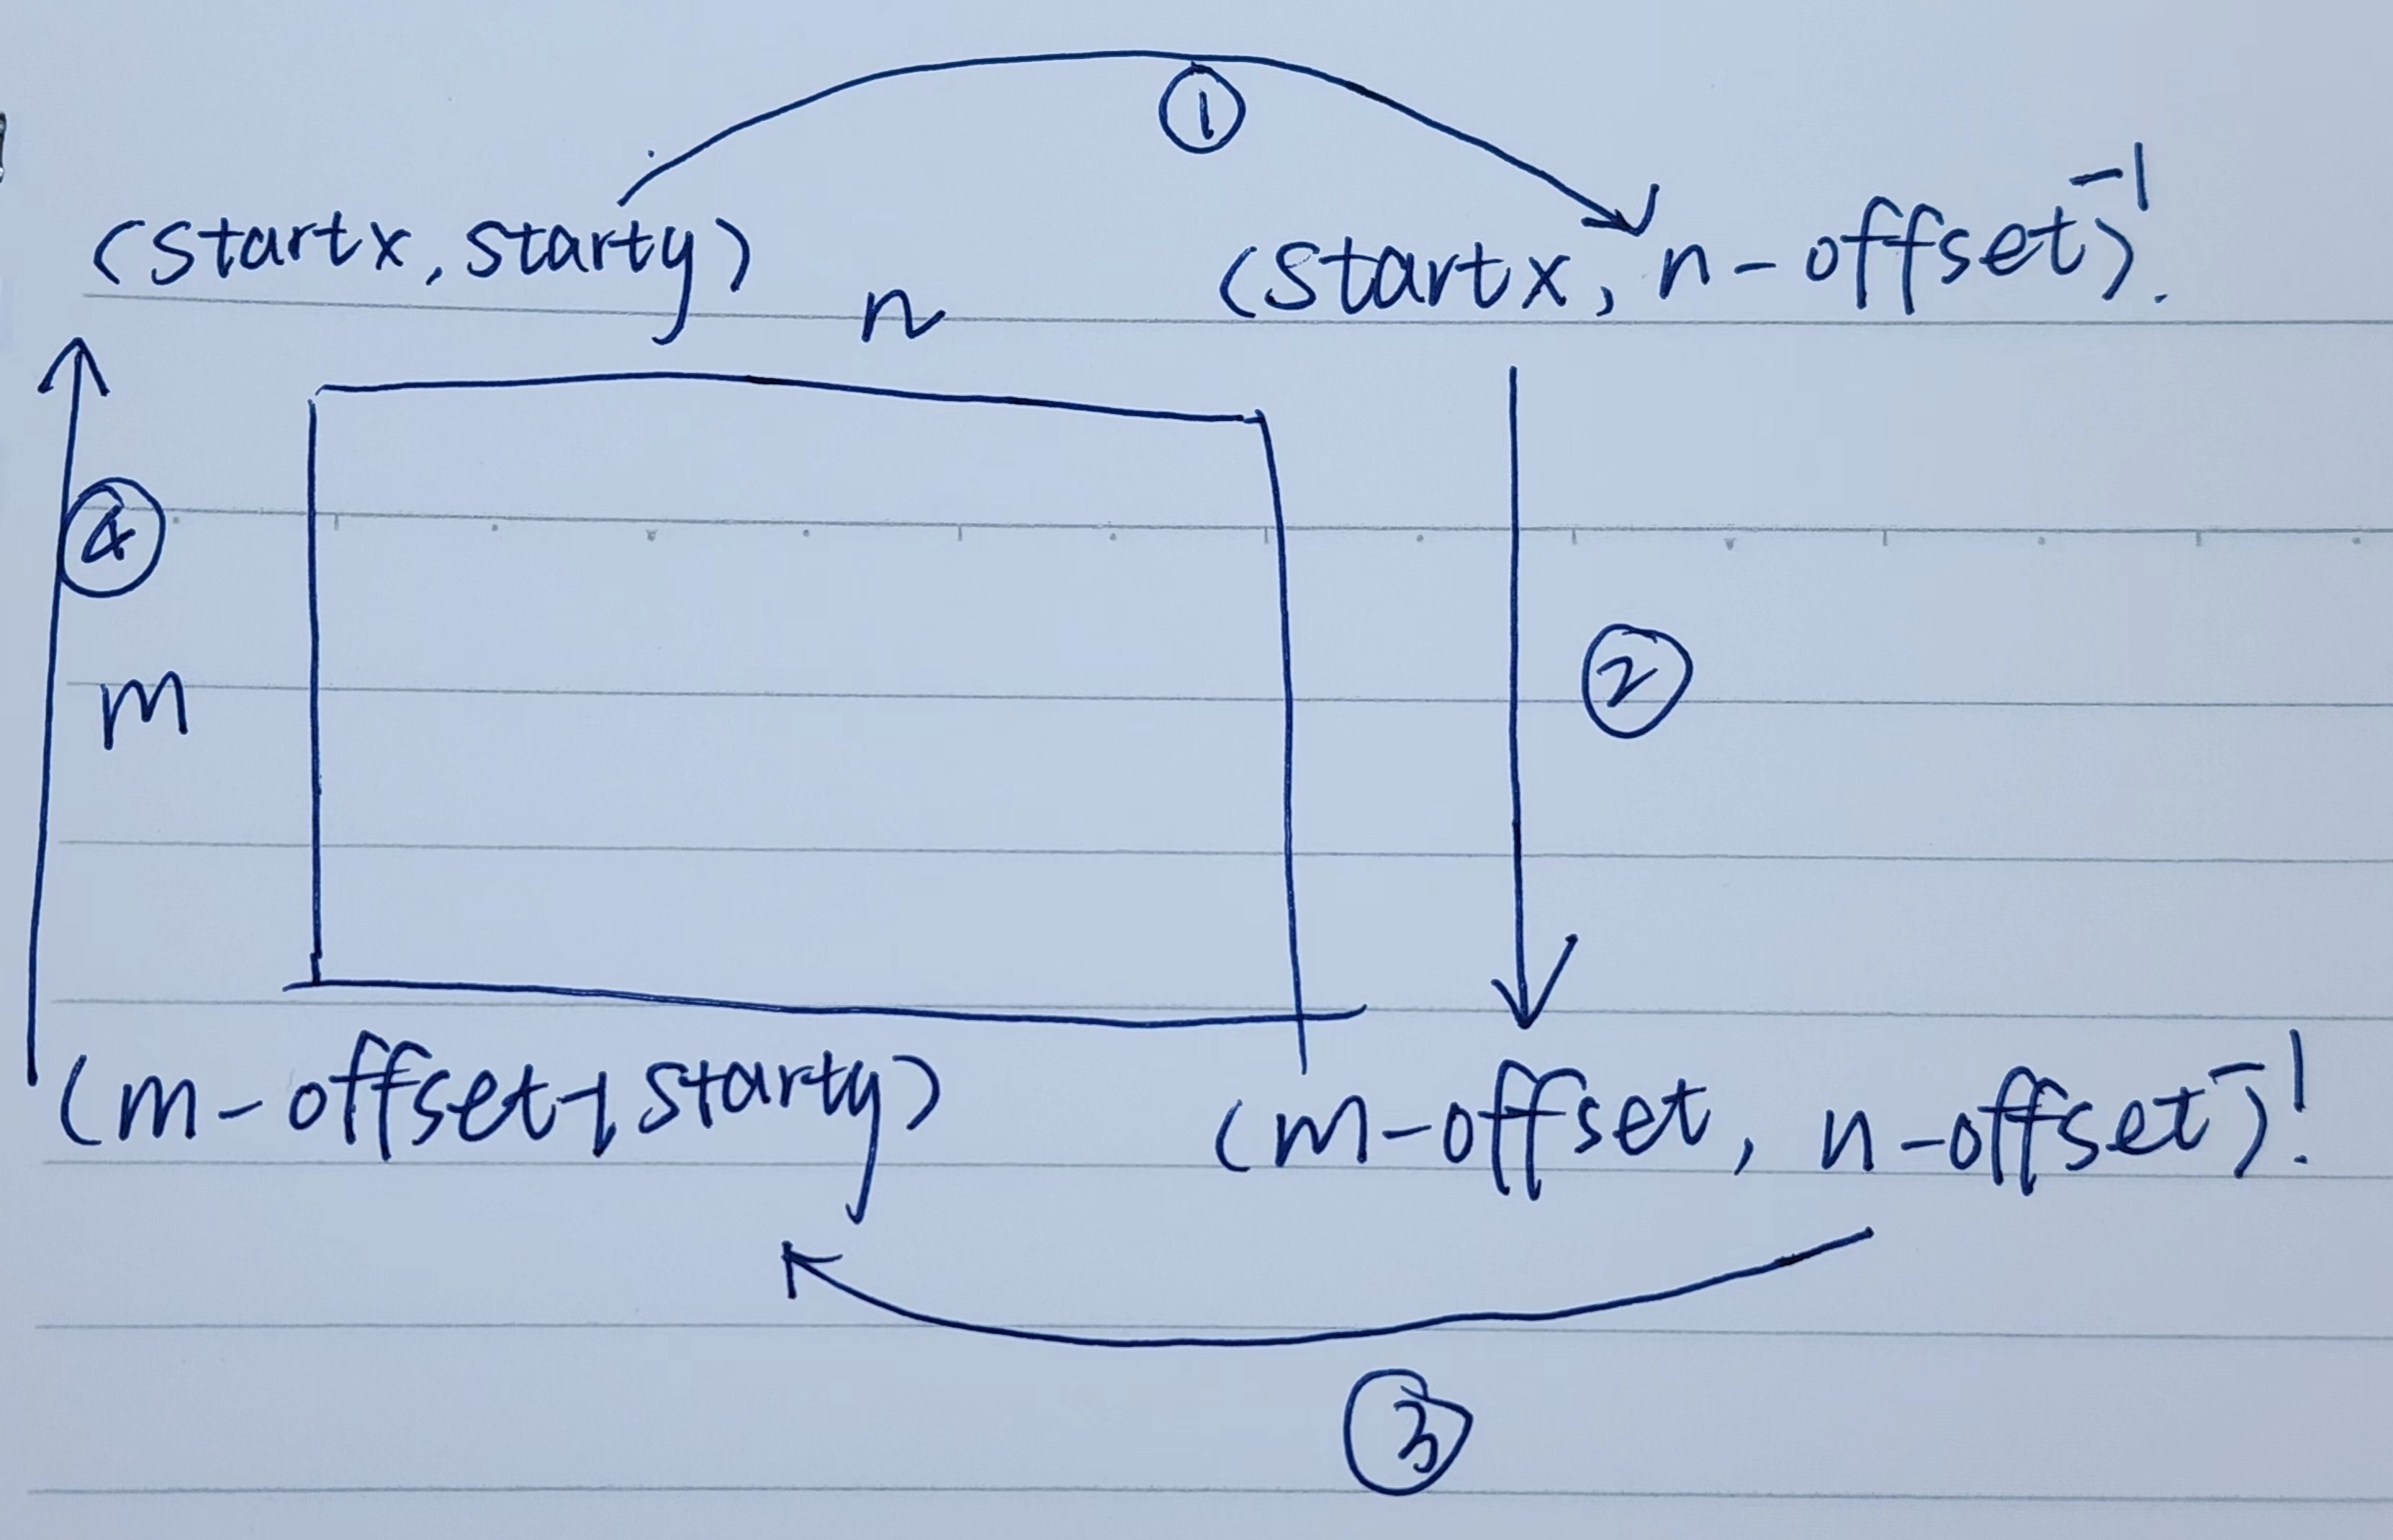 ①
(startx, starty)
(startx, n-offset-1).
n
④
②
m
(m-offset-1, starty)
(m-offset, n-offset-1).
③